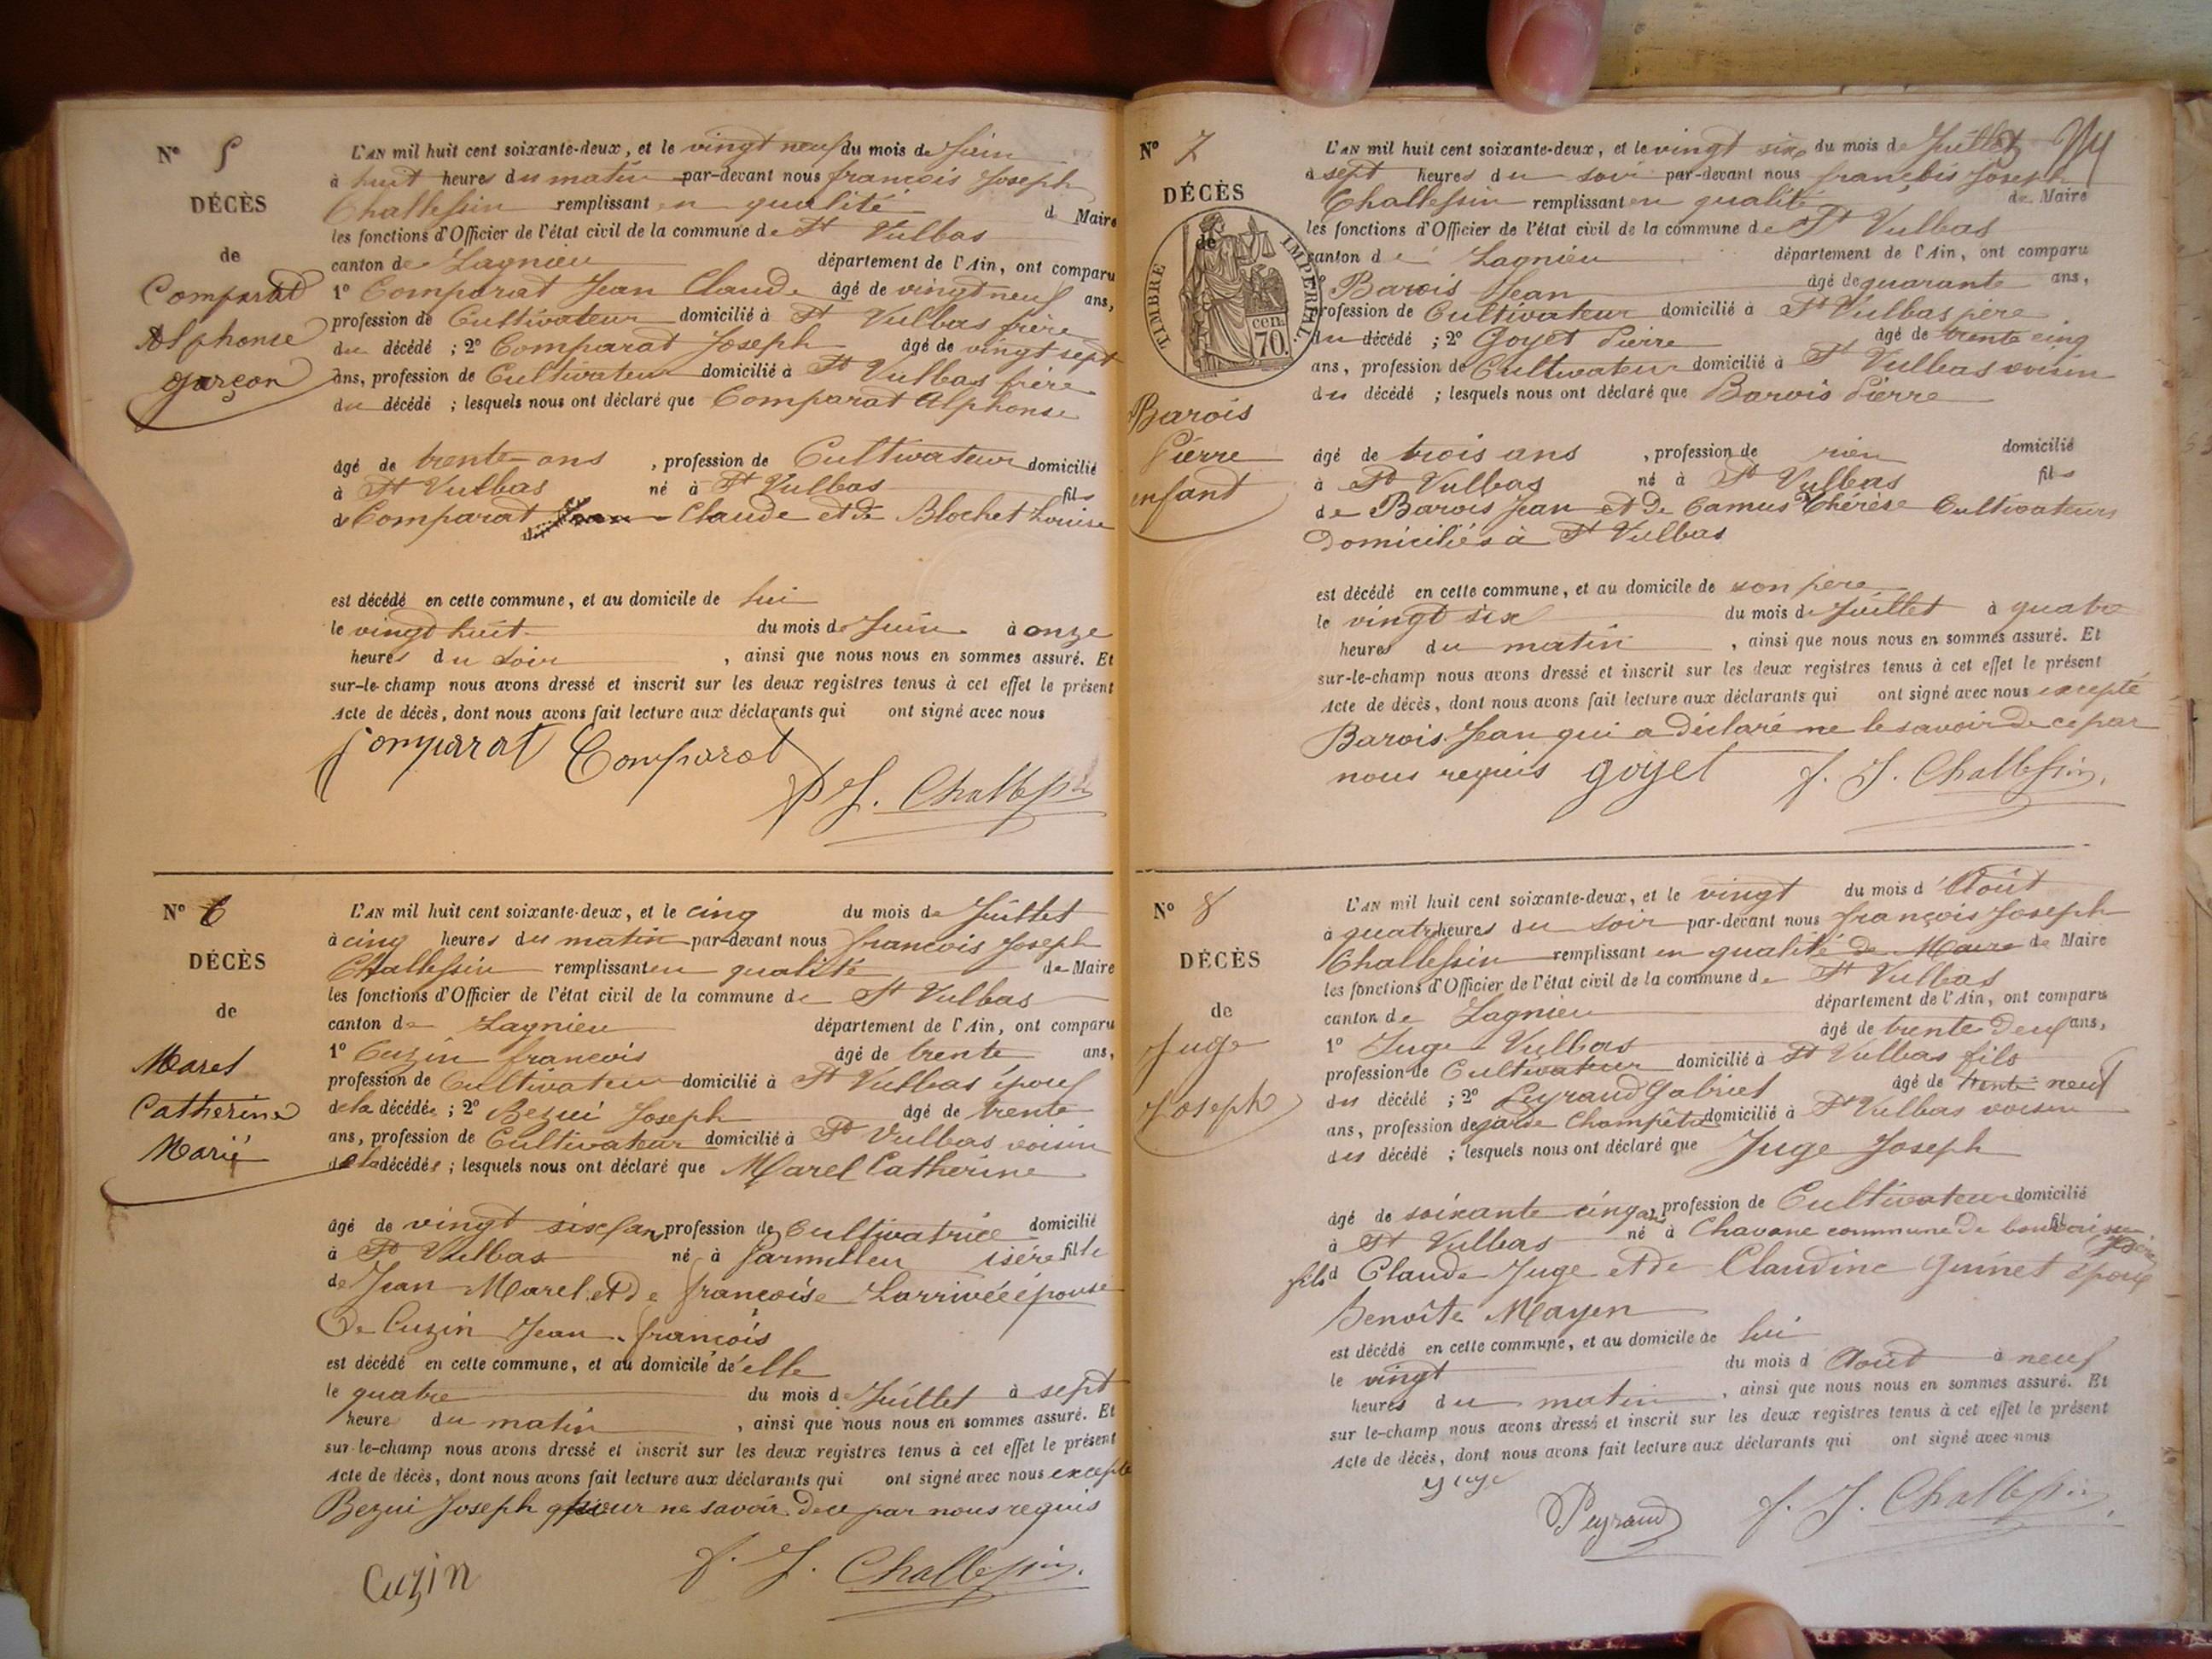 N° 5
DÉCÈS
de
Comparat
Alphonse
garçon
L'AN mil huit cent soixante-deux, et le vingt neuf du mois de Juin
à huit heures du matin par-devant nous françois Joseph
Challessin remplissant en qualité de Maire
les fonctions d'Officier de l'état civil de la commune de St Vulbas
canton de Lagnieu département de l'Ain, ont comparu
1° Comparat Jean Claude âgé de vingt neuf ans,
profession de Cultivateur domicilié à St Vulbas frère
du décédé ; 2° Comparat Joseph âgé de vingt sept
ans, profession de Cultivateur domicilié à St Vulbas frère
du décédé ; lesquels nous ont déclaré que Comparat Alphonse
âgé de trente ans , profession de Cultivateur domicilié
à St Vulbas né à St Vulbas fils
de Comparat Claude et de Blochet Louise
est décédé en cette commune, et au domicile de lui
le vingt huit du mois de Juin à onze
heures du soir , ainsi que nous nous en sommes assuré. Et
sur-le-champ nous avons dressé et inscrit sur les deux registres tenus à cet effet le présent
Acte de décès, dont nous avons fait lecture aux déclarants qui ont signé avec nous
Comparat Comparat
f. J. Challessin
N° 6
DÉCÈS
de
Marel
Catherine
Marié
L'AN mil huit cent soixante-deux, et le cinq du mois de Juillet
à cinq heures du matin par-devant nous françois Joseph
Challessin remplissant en qualité de Maire
les fonctions d'Officier de l'état civil de la commune de St Vulbas
canton de Lagnieu département de l'Ain, ont comparu
1° Cuzin françois âgé de trente ans,
profession de Cultivateur domicilié à St Vulbas époux
de la décédée ; 2° Bezui Joseph âgé de trente
ans, profession de Cultivateur domicilié à St Vulbas voisin
de la décédée ; lesquels nous ont déclaré que Marel Catherine
âgé de vingt six ans, profession de Cultivatrice domicilié
à St Vulbas né à Parmilieu isère fille
de Jean Marel et de françoise Larrivée épouse
De Cuzin Jean françois
est décédé en cette commune, et au domicile de elle
le quatre du mois de Juillet à sept
heure du matin , ainsi que nous nous en sommes assuré. Et
sur-le-champ nous avons dressé et inscrit sur les deux registres tenus à cet effet le présent
Acte de décès, dont nous avons fait lecture aux déclarants qui ont signé avec nous excepté
Bezui Joseph pour ne savoir de ce par nous requis
Cuzin f. J. Challessin.
N° 7
DÉCÈS
de
TIMBRE IMPÉRIAL
70 cen.
Barois
Pierre
enfant
L'AN mil huit cent soixante-deux, et le vingt six du mois de Juillet
à sept heures du soir par-devant nous françois Joseph
Challessin remplissant en qualité de Maire
les fonctions d'Officier de l'état civil de la commune de St Vulbas
canton de Lagnieu département de l'Ain, ont comparu
1° Barois Jean âgé de quarante ans,
profession de Cultivateur domicilié à St Vulbas père
du décédé ; 2° Goyet Pierre âgé de trente cinq
ans, profession de Cultivateur domicilié à St Vulbas voisin
du décédé ; lesquels nous ont déclaré que Barois Pierre
âgé de trois ans , profession de rien domicilié
à St Vulbas né à St Vulbas fils
de Barois Jean et de Camus Thérèse Cultivateurs
Domiciliés à St Vulbas
est décédé en cette commune, et au domicile de son père
le vingt six du mois de Juillet à quatre
heures du matin , ainsi que nous nous en sommes assuré. Et
sur-le-champ nous avons dressé et inscrit sur les deux registres tenus à cet effet le présent
Acte de décès, dont nous avons fait lecture aux déclarants qui ont signé avec nous excepté
Barois Jean qui a déclaré ne le savoir de ce par
nous requis goyet f. J. Challessin.
N° 8
DÉCÈS
de
Juge
Joseph
L'AN mil huit cent soixante-deux, et le vingt du mois d'Août
à quatre heures du soir par-devant nous françois Joseph
Challessin remplissant en qualité de Maire de Maire
les fonctions d'Officier de l'état civil de la commune de St Vulbas
canton de Lagnieu département de l'Ain, ont comparu
1° Juge Vulbas âgé de trente deux ans,
profession de Cultivateur domicilié à St Vulbas fils
du décédé ; 2° Peyraud Gabriel âgé de trente neuf
ans, profession de garde Champêtre domicilié à St Vulbas voisin
du décédé ; lesquels nous ont déclaré que Juge Joseph
âgé de soixante cinq ans profession de Cultivateur domicilié
à St Vulbas né à Chavane commune de
fils d Claude Juge et de Claudine Guinet époux
Benoîte Mayen
est décédé en cette commune, et au domicile de lui
le vingt du mois d Août à neuf
heures du matin , ainsi que nous nous en sommes assuré. Et
sur le-champ nous avons dressé et inscrit sur les deux registres tenus à cet effet le présent
Acte de décès, dont nous avons fait lecture aux déclarants qui ont signé avec nous
juge
Peyraud f. J. Challessin